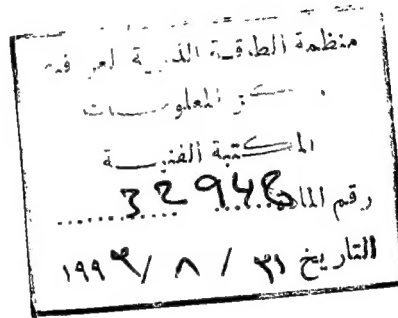 منظمة الطاقة الذرية العراقية
مركز المعلومات
المكتبة الفنية
رقم المادة 32948
التاريخ / ٨ /